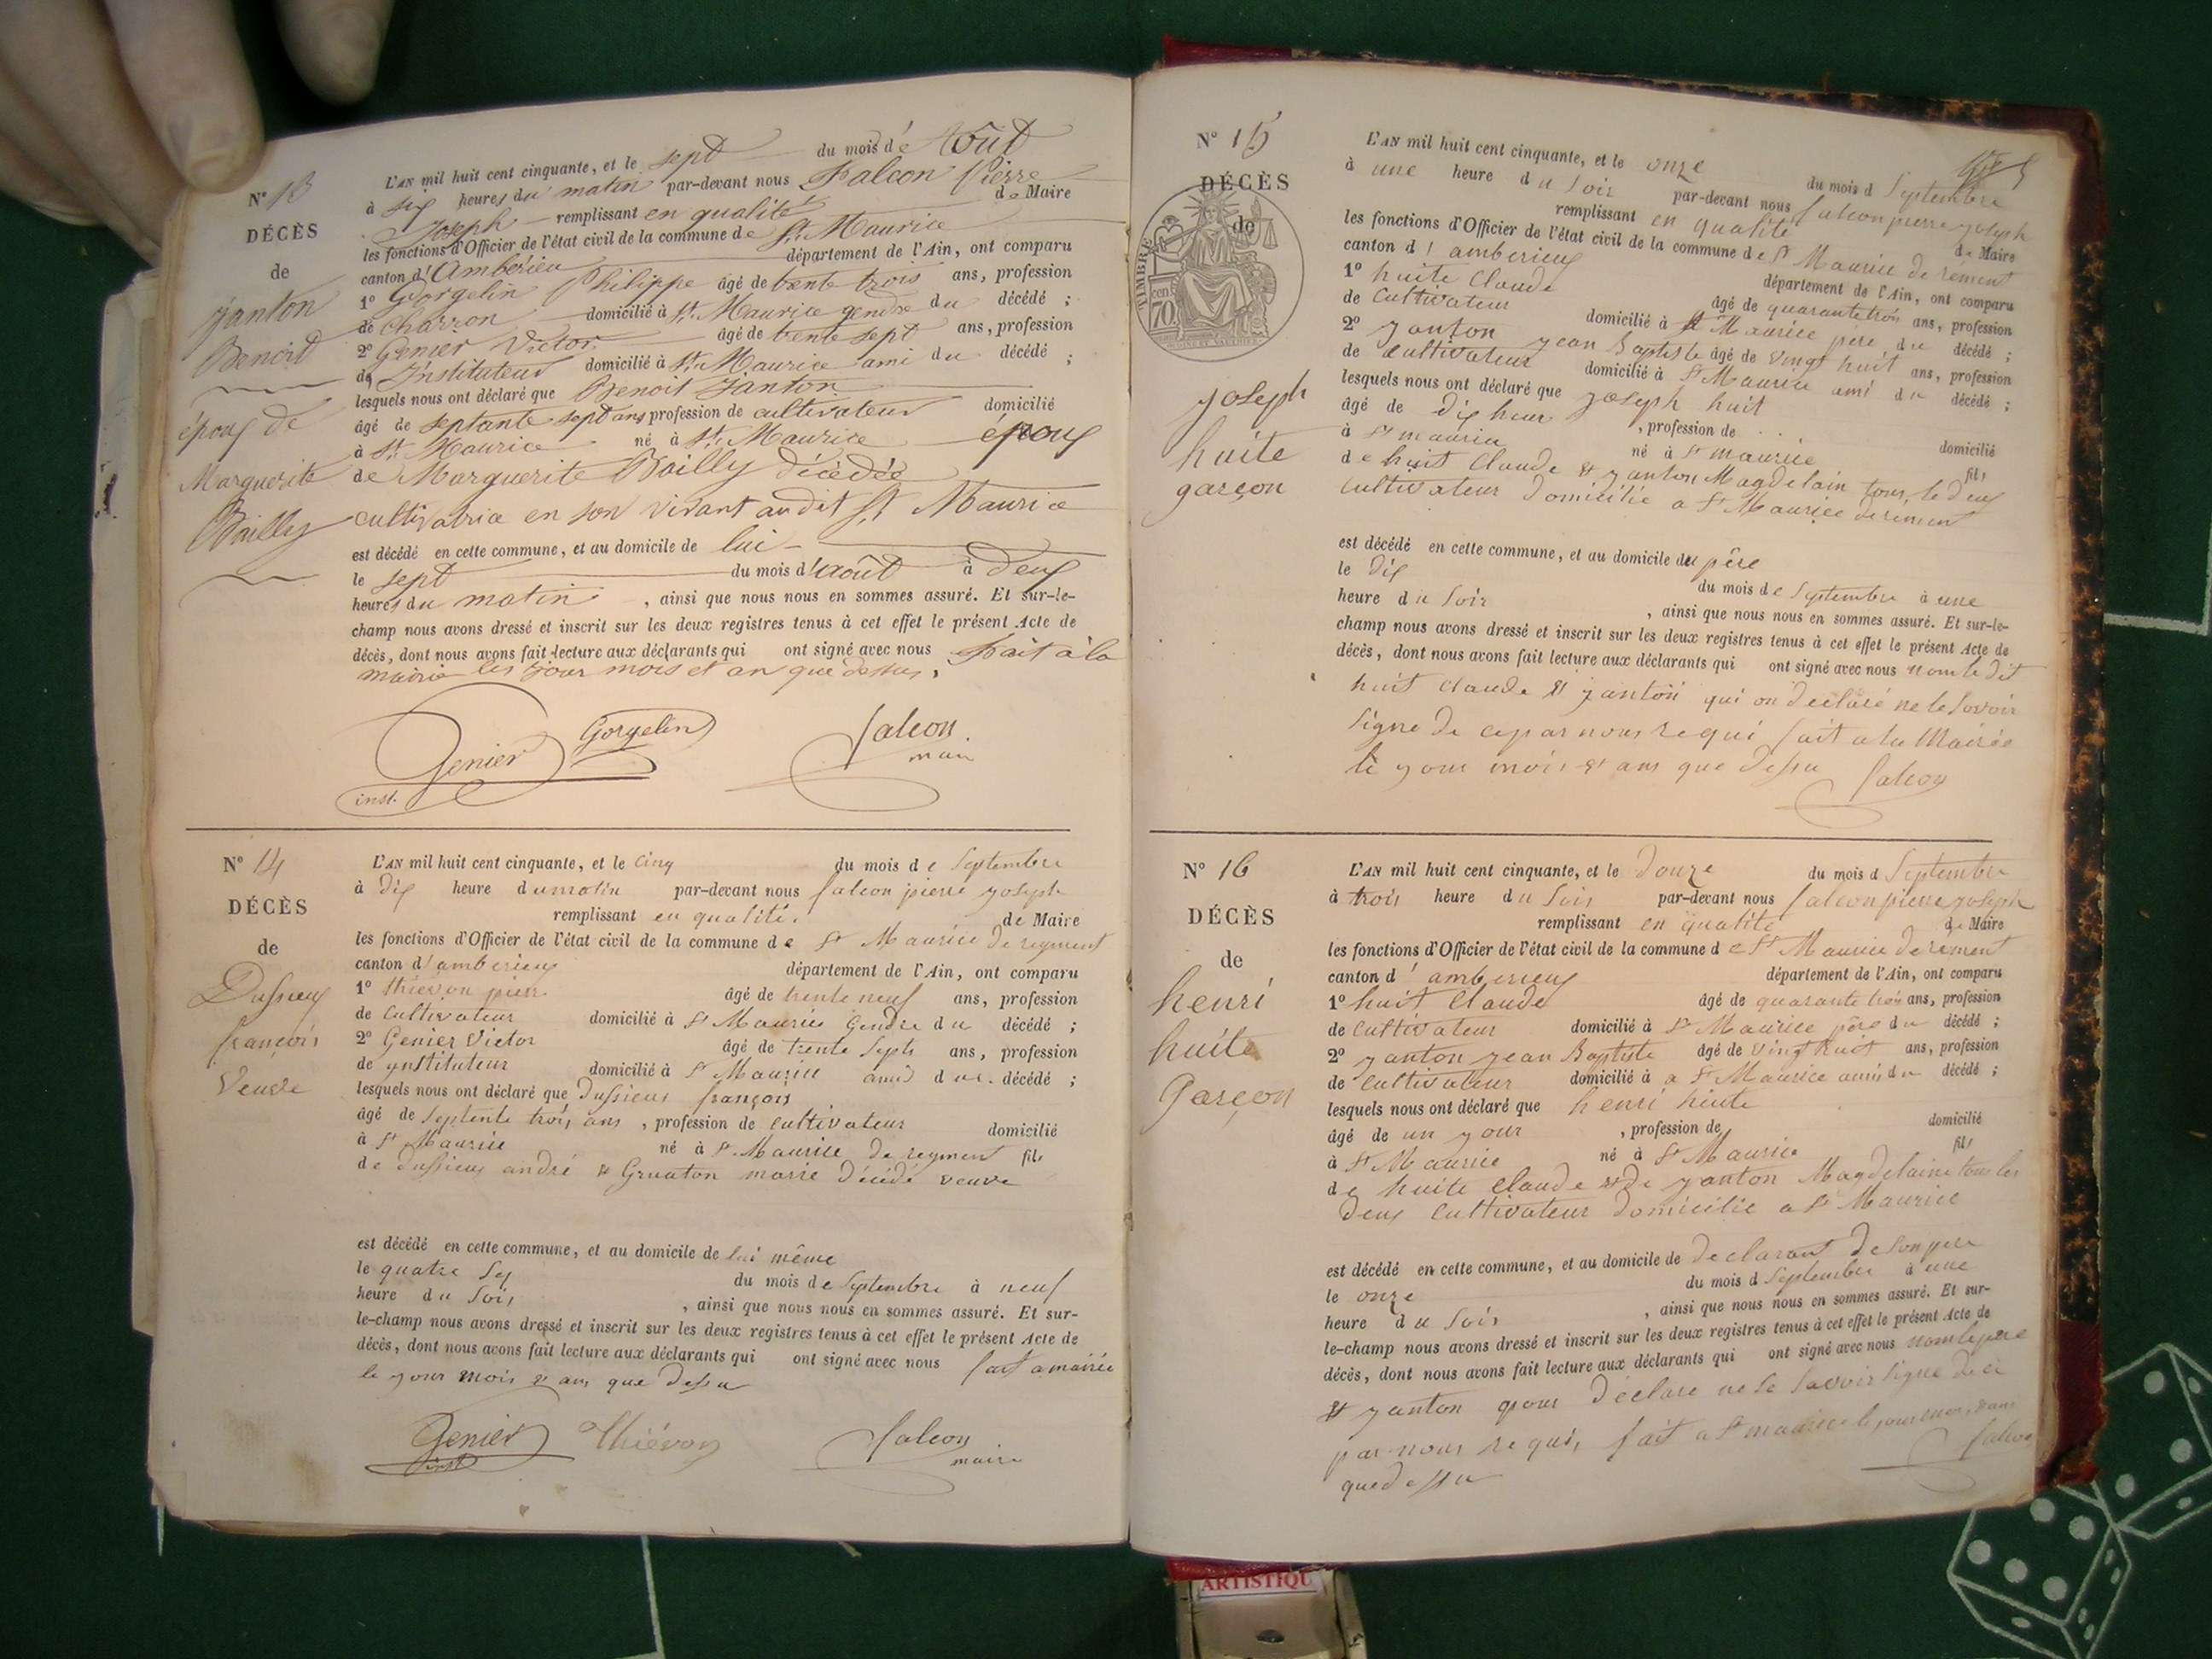 N° 13
DÉCÈS
de
Janton
Benoit
époux de
Marguerite
Bailly
L'AN mil huit cent cinquante, et le sept du mois d'Août
à six heures du matin par-devant nous Falcon Pierre
Joseph remplissant en qualité de Maire
les fonctions d'Officier de l'état civil de la commune de St. Maurice
canton d'Ambérieu département de l'Ain, ont comparu
1° Gorgelin Philippe âgé de trente trois ans, profession
de charron domicilié à St. Maurice gendre du décédé ;
2° Genier Victor âgé de trente sept ans, profession
de Instituteur domicilié à St. Maurice ami du décédé ;
lesquels nous ont déclaré que Benoit Janton
âgé de septante sept ans profession de cultivateur domicilié
à St. Maurice né à St. Maurice époux
de Marguerite Bailly décédée
cultivatrice en son vivant audit St Maurice
est décédé en cette commune, et au domicile de lui
le sept du mois d'août à deux
heures du matin, ainsi que nous nous en sommes assuré. Et sur-le-
champ nous avons dressé et inscrit sur les deux registres tenus à cet effet le présent Acte de
décès, dont nous avons fait lecture aux déclarants qui ont signé avec nous Fait à la
mairie les jour mois et an que dessus.
Genier Gorgelin Falcon
inst. maire
N° 14
DÉCÈS
de
Dussieux
françois
Veuve
L'AN mil huit cent cinquante, et le cinq du mois de Septembre
à dix heure du matin par-devant nous falcon pierre joseph
remplissant en qualité de Maire
les fonctions d'Officier de l'état civil de la commune de St Maurice de reyment
canton d'amberieux département de l'Ain, ont comparu
1° thievon pierr âgé de trente neuf ans, profession
de Cultivateur domicilié à St Maurice Gendre du décédé ;
2° Genier Victor âgé de trente septs ans, profession
de ynstituteur domicilié à St Maurice amis du décédé ;
lesquels nous ont déclaré que Dussieux françois
âgé de septente trois ans, profession de cultivateur domicilié
à St Maurice né à St. Maurice de reyment fils
de dussieux andré et Gruaton marie décédé veuve
est décédé en cette commune, et au domicile de lui même
le quatre Sep du mois de Septembre à neuf
heure du Soir, ainsi que nous nous en sommes assuré. Et sur-
le-champ nous avons dressé et inscrit sur les deux registres tenus à cet effet le présent Acte de
décès, dont nous avons fait lecture aux déclarants qui ont signé avec nous fait a mairie
le your mois et ans que dessu
Genier Thiévon falcon
inst maire
N° 15
DÉCÈS
de
TIMBRE
cen
70.
joseph
huite
garçon
L'AN mil huit cent cinquante, et le onze du mois d Septembre
à une heure du Soir par-devant nous falcon pierre joseph
remplissant en qualité de Maire
les fonctions d'Officier de l'état civil de la commune de St Maurice de rement
canton d'amberieux département de l'Ain, ont comparu
1° huite Claude âgé de quarante trois ans, profession
de Cultivateur domicilié à St Maurice père du décédé ;
2° yanton yean Baptiste âgé de vingt huit ans, profession
de Cultivateur domicilié à St Maurice ami du décédé ;
lesquels nous ont déclaré que joseph huit
âgé de dix heur, profession de domicilié
à St maurice né à St maurice fils
de huit Claude et yanton Magdelain tous le deux
Cultivateur domicilié a St Maurice de rement
est décédé en cette commune, et au domicile du père
le dix du mois de Septembre à une
heure du Soir, ainsi que nous nous en sommes assuré. Et sur-le-
champ nous avons dressé et inscrit sur les deux registres tenus à cet effet le présent Acte de
décès, dont nous avons fait lecture aux déclarants qui ont signé avec nous nom le dit
huit Claude et yanton qui on déclaré ne le Savoir
Signe de ce par nous requi fait a la Mairie
le your mois et ans que dessu falcon
N° 16
DÉCÈS
de
henri
huite
Garçon
L'AN mil huit cent cinquante, et le Douze du mois d Septembre
à trois heure du Soir par-devant nous falcon pierre joseph
remplissant en qualité de Maire
les fonctions d'Officier de l'état civil de la commune de St Maurice de rement
canton d'amberieux département de l'Ain, ont comparu
1° huit Claude âgé de quarante trois ans, profession
de Cultivateur domicilié à St Maurice père du décédé ;
2° yanton yean Baptiste âgé de vingt huit ans, profession
de Cultivateur domicilié à a St Maurice amis du décédé ;
lesquels nous ont déclaré que henri huite
âgé de un your, profession de domicilié
à St Maurice né à St Maurice fils
de huite Claude et de yanton Magdelaine tous les
Deux Cultivateur domicilie a St Maurice
est décédé en cette commune, et au domicile de declarant de son pere
le onze du mois d September à une
heure du Soir, ainsi que nous nous en sommes assuré. Et sur-
le-champ nous avons dressé et inscrit sur les deux registres tenus à cet effet le présent Acte de
décès, dont nous avons fait lecture aux déclarants qui ont signé avec nous nom le père
et yanton déclare ne le Savoir signe de ce
par nous requis fait a St maurice le jour mois et ans
que dessu falcon
ARTISTIQU